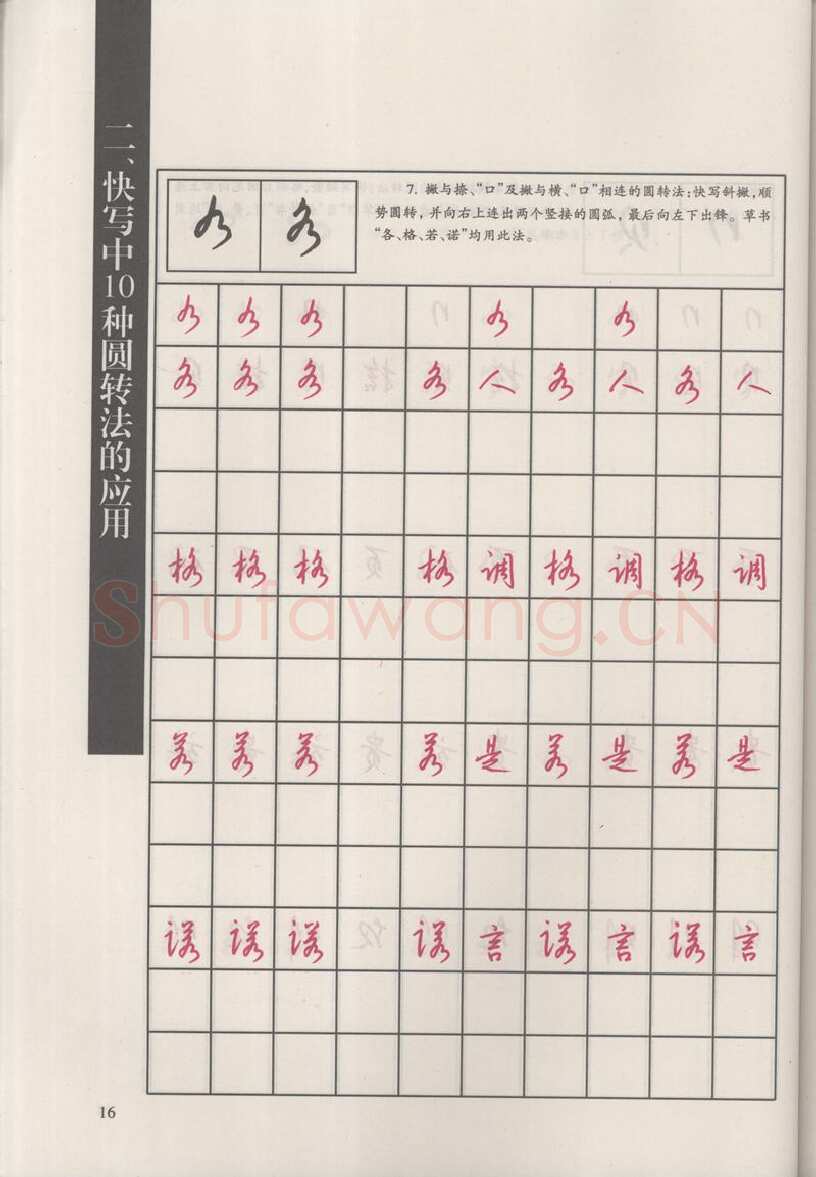 二、快写中10种圆转法的应用
7. 撇与捺、“口”及撇与横、“口”相连的圆转法:快写斜撇,顺
势圆转,并向右上连出两个竖接的圆弧,最后向左下出锋。草书
“各、格、若、诺”均用此法。
各
各 各 各 各 人 各 人 各 人
格 格 格 格 调 格 调 格 调
若 若 若 若 是 若 是 若 是
诺 诺 诺 诺 言 诺 言 诺 言
Shufawang.CN
16